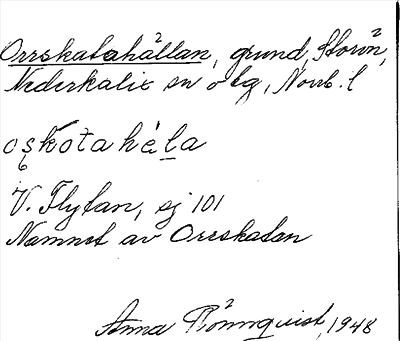 Orrskatahällan, grund, Storön,
Nederkalix sn o tg, Norrb. l
oşkotahèla
V. Flytan, sj 101
Namnet av Orrskatan
Anna Rönnquist, 1948